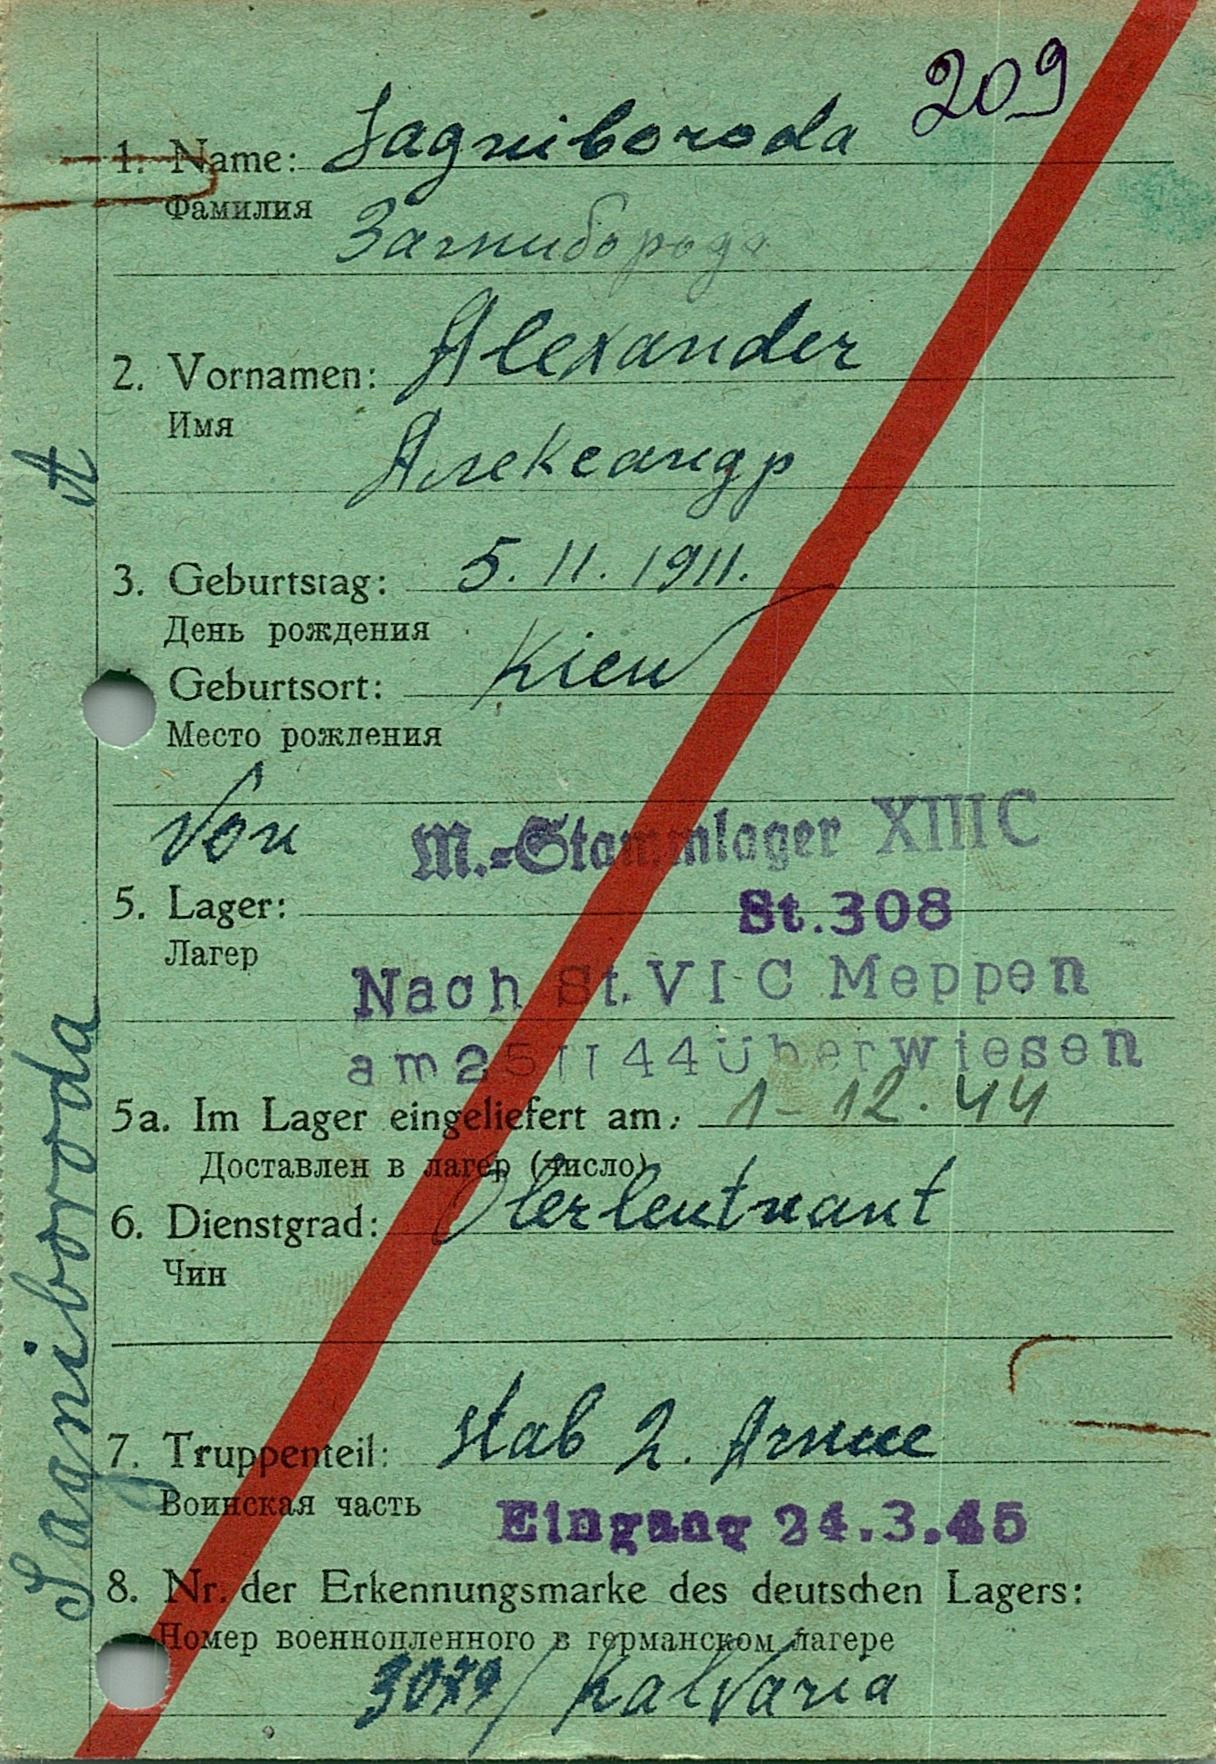 209
1. Name: Sagniboroda
Фамилия Загниборода
2. Vornamen: Alexander
Имя
Александр
3. Geburtstag: 5. 11. 1911.
День рождения
Geburtsort: Kiew
Место рождения
Von M.-Stammlager XIII C
5. Lager: St. 308
Лагер
Nach St. VI C Meppen
am 25 11 44 überwiesen
5a. Im Lager eingeliefert am: 1-12.44
Доставлен в лагер (число)
6. Dienstgrad: Oberleutnant
Чин
7. Truppenteil: Stab 2. Armee
Воинская часть
Eingang 24.3.45
8. Nr. der Erkennungsmarke des deutschen Lagers:
Номер военнопленного в германском лагере
3079/ Kalvaria
Sagniboroda A